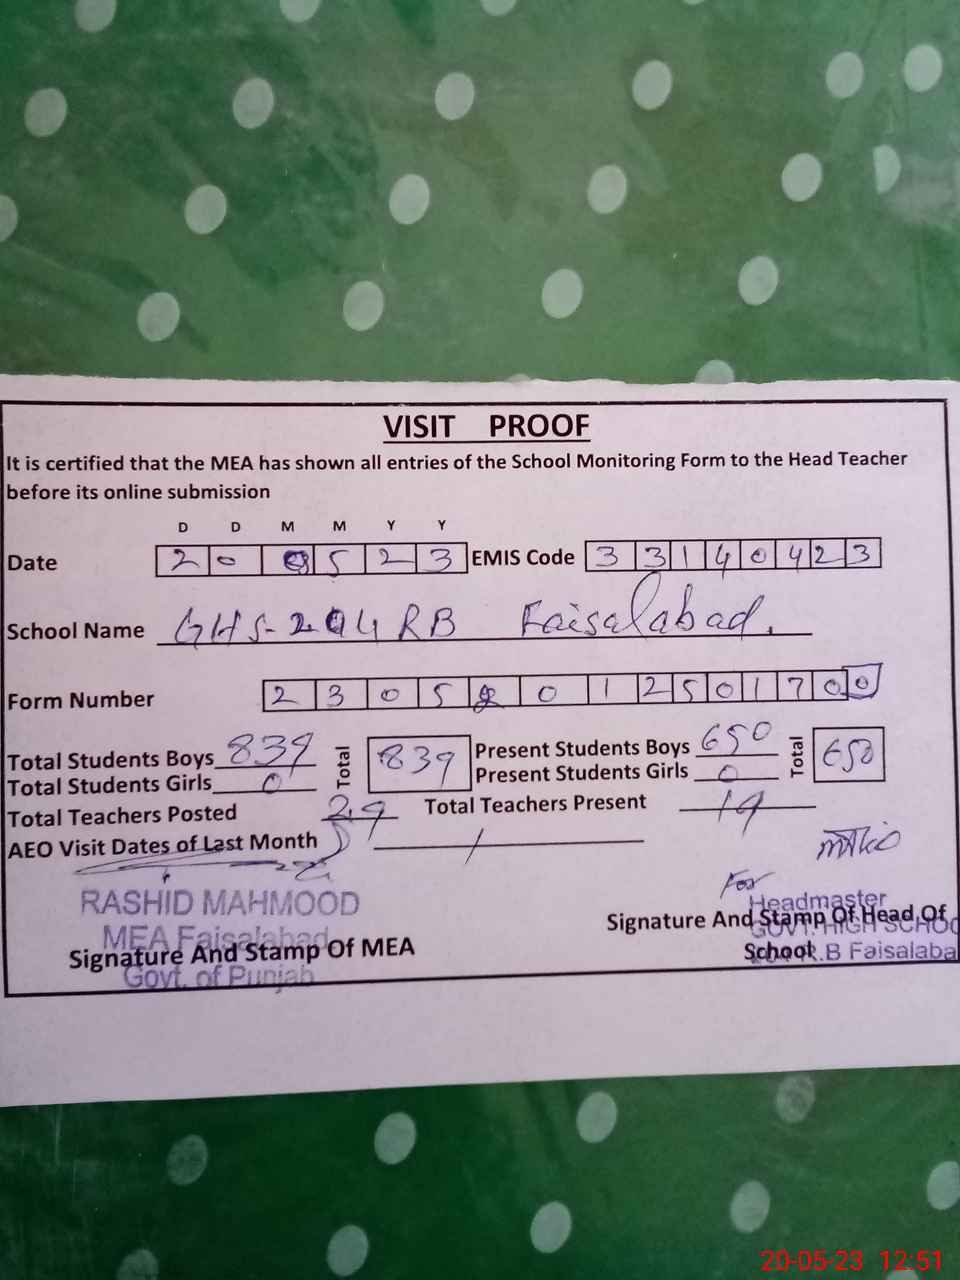 VISIT PROOF
It is certified that the MEA has shown all entries of the School Monitoring Form to the Head Teacher
before its online submission
D D M M Y Y
Date 2 0 0 5 2 3 EMIS Code 3 3 1 4 0 4 2 3
School Name GHS-204 RB Faisalabad.
Form Number 2 3 0 5 2 0 1 2 5 0 1 7 0 0
Total Students Boys 839 Total 839 Present Students Boys 650 Total 650
Total Students Girls 0 Present Students Girls 0
Total Teachers Posted 29 Total Teachers Present 19
AEO Visit Dates of Last Month /
For
RASHID MAHMOOD
MEA Faisalabad
Govt. of Punjab
Signature And Stamp Of MEA
Headmaster
GOVT. HIGH SCHOO
R.B Faisalaba
Signature And Stamp Of Head Of
School
20-05-23 12:51